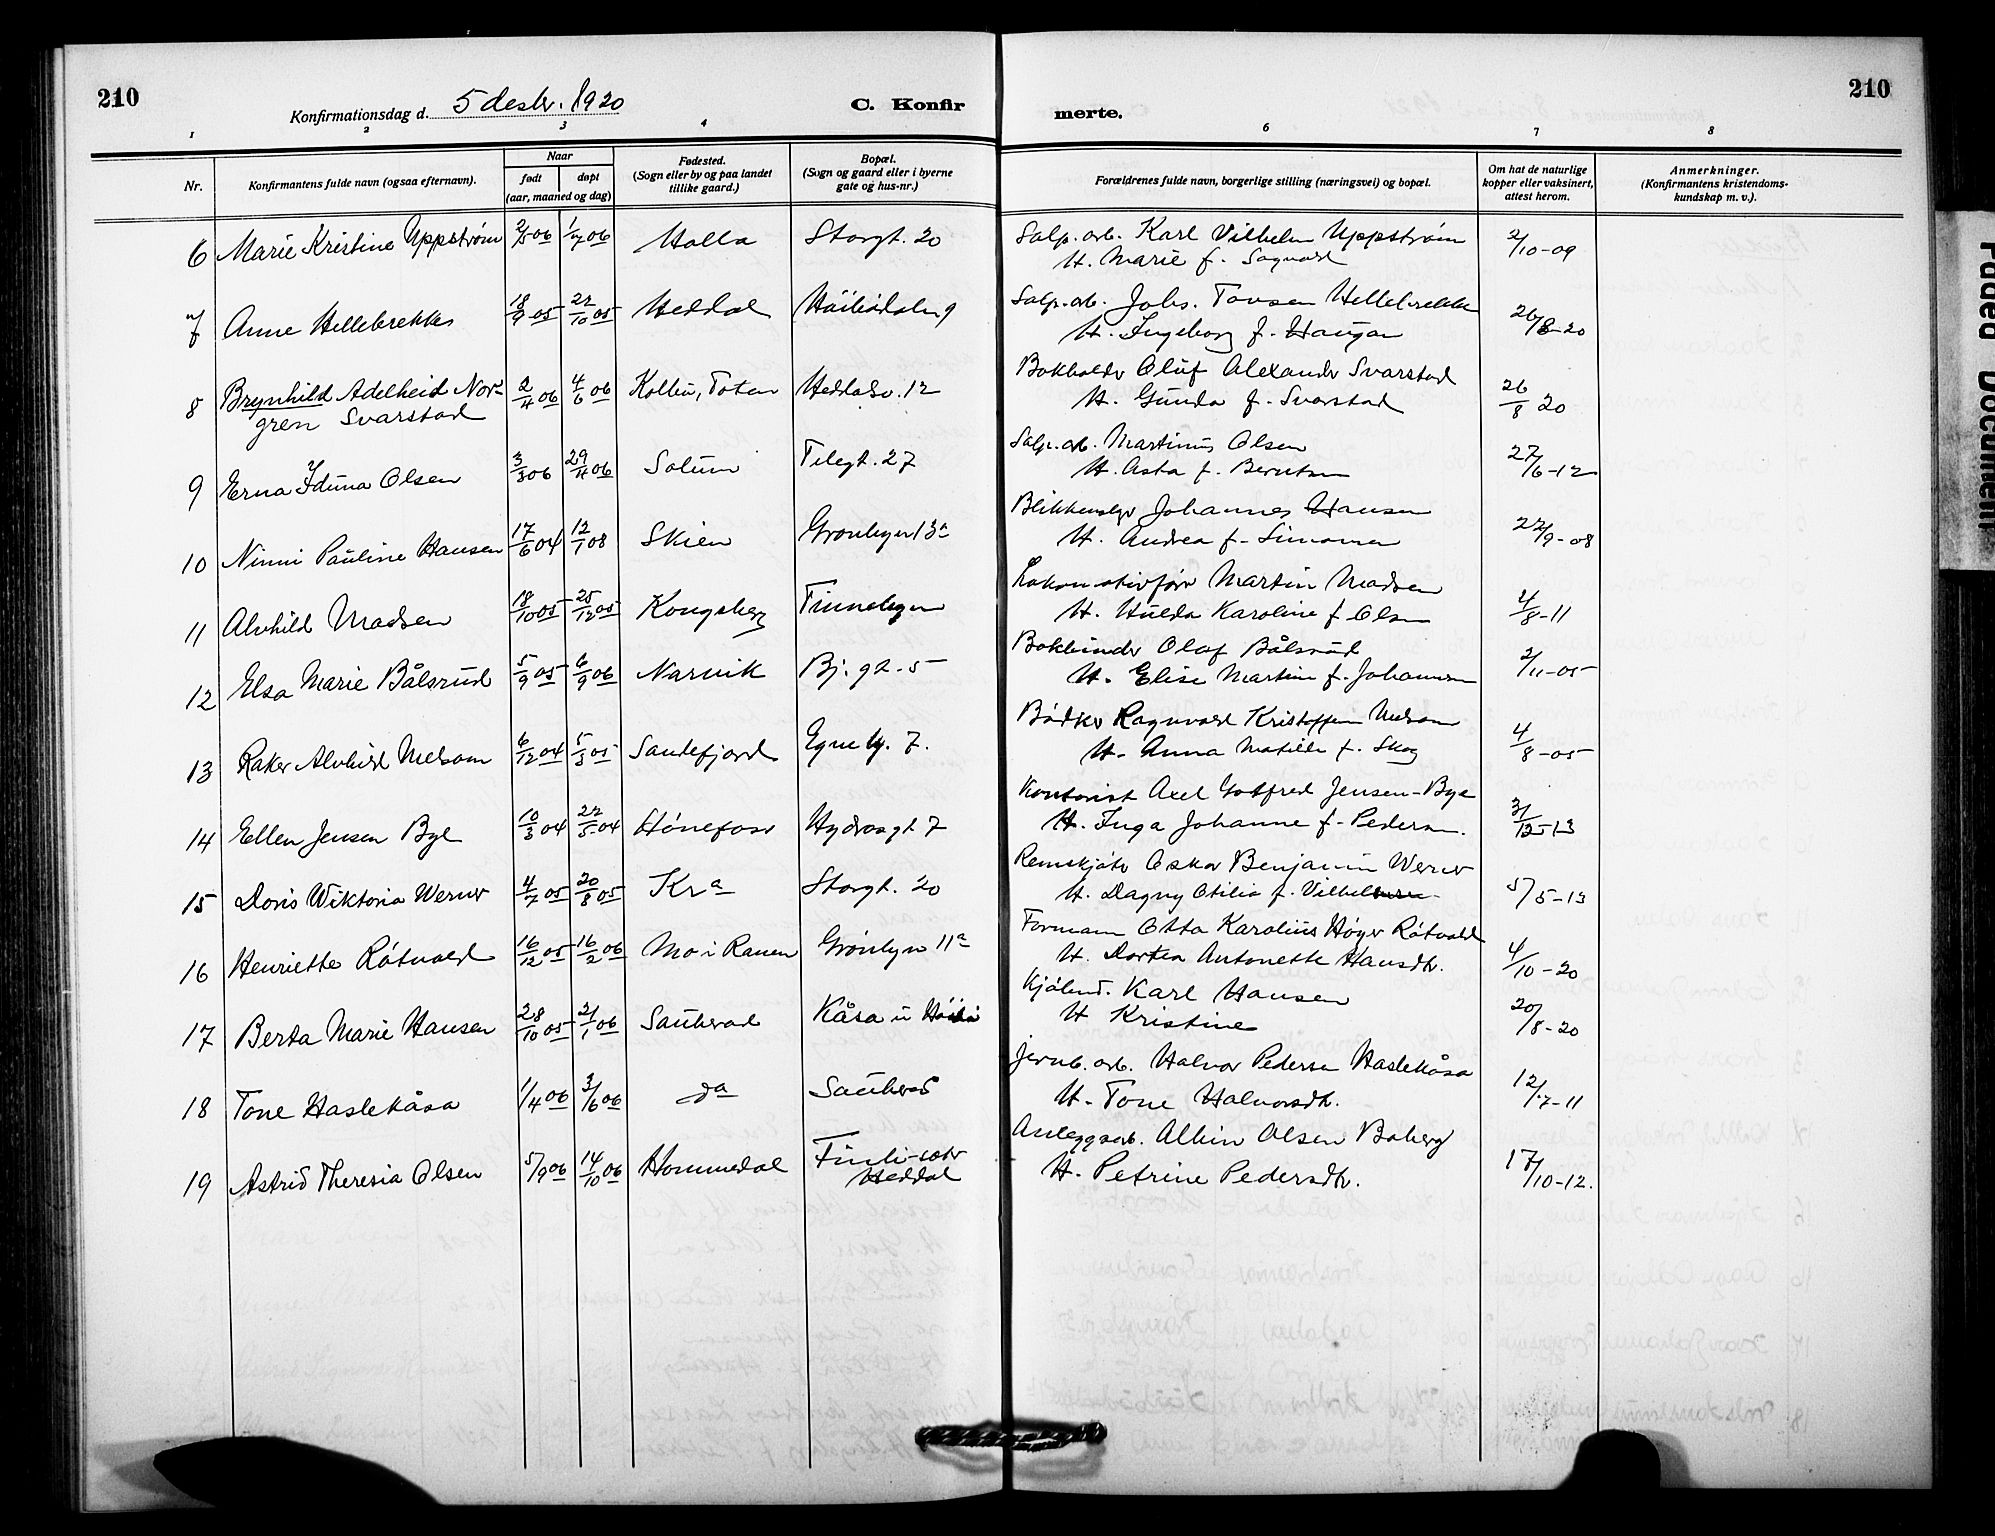 210
Konfirmationsdag d. 5 desbr. 1920
C. Konfir
merte.
210
1 2 3 4 6 7 8
Nr.
Konfirmantens fulde navn (ogsaa efternavn).
Naar
født døpt
(aar, maaned og dag)
Fødested.
(Sogn eller by og paa landet
tillike gaard.)
Bopæl.
(Sogn og gaard eller i byerne
gate og hus-nr.)
Forældrenes fulde navn, borgerlige stilling (næringsvei) og bopæl.
Om hat de naturlige
kopper eller vaksinert,
attest herom.
Anmerkninger.
(Konfirmantens kristendoms-
kundskap m. v.).
6 Marie Kristine Uppstrøm 2/5 06 1/7 06 Holla Storgt. 20 Salp. arb. Karl Vilhelm Uppstrøm 2/10-09
H. Marie f.
7 Anne Hellebrekke 18/9 05 22/10 05 Heddal 9 Salp. arb. Johs. Tovsen Hellebrekke 26/8-20
H. Ingeborg f. Haugan
8 Brynhild Adelheid Nor- 2/4 06 4/6 06 Kolbu, Toten Heddalsv. 12 Bokholder Oluf Alexander Svarstad 26/8 20
gren Svarstad H. Gunda f. Svarstad
9 Erna Iduna Olsen 3/3 06 29/4 06 Solum Telegt. 27 Salp. arb. Martinus Olsen 27/6-12
H. Asta f. Berntsen
10 Ninni Pauline Hansen 17/6 04 12/1 08 Skien Grønbyen 13a Johannes Hansen 22/9-08
H. Andrea f. Simonsen
11 Alvhild Madsen 18/10 05 25/12 05 Kongsberg Tinnebyen Lokomotivfører Martin Madsen 4/8-11
H. Hulda Karoline f. Olsen
12 Elsa Marie Bålsrud 5/9 05 6/9 06 Narvik Bj. gt. 5 Bokbinder Olaf Bålsrud 2/11-05
H. Elise Martine f. Johannesen
13 Alvhild Melsom 6/12 04 5/3 05 Sandefjord Egne hj. 7. Bødker Ragnvald Kristoffersen Melsom 4/8-05
H. Anna Matilde f. Skog
14 Ellen Jensen Bye 10/3 04 22/5 04 Hønefoss Hydrosgt 7 Kontorist Axel Gotfred Jensen-Bye 31/12-13
H. Inga Johanne f. Pedersen.
15 Doris Wiktoria Werner 4/7 05 20/8 05 Kra Storgt. 20 Oskar Benjamin Werner 5/5-13
H. Dagny Otilia f. Vilhelmsen
16 Henriette Røtvold 16/12 05 16/2 06 Mo i Ranen Grønbyn 11a Formann Otto Karolius Høyer Røtvold 4/10-20
H. Dortea Antonette Hansdtr.
17 Berta Marie Hansen 28/10 05 21/1 06 Sauherad Kåsa Karl Hansen 20/8-20
H Kristine
18 Tone Haslekåsa 1/4 06 3/6 06 do Sauherad Jernb. arb. Halvor Pedersen Haslekåsa 12/7-11
H. Tone Halvorsdtr.
19 Astrid Theresia Olsen 5/9 06 14/10 06 Hommedal Heddal Anleggsarb. Albin Olsen Boberg 17/10-12.
H. Petrine Pedersdtr.
Faded Document